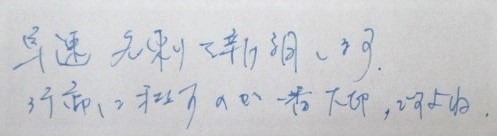 早速 名刺 新調します.
行動に移すのが一番大切,ですよね.